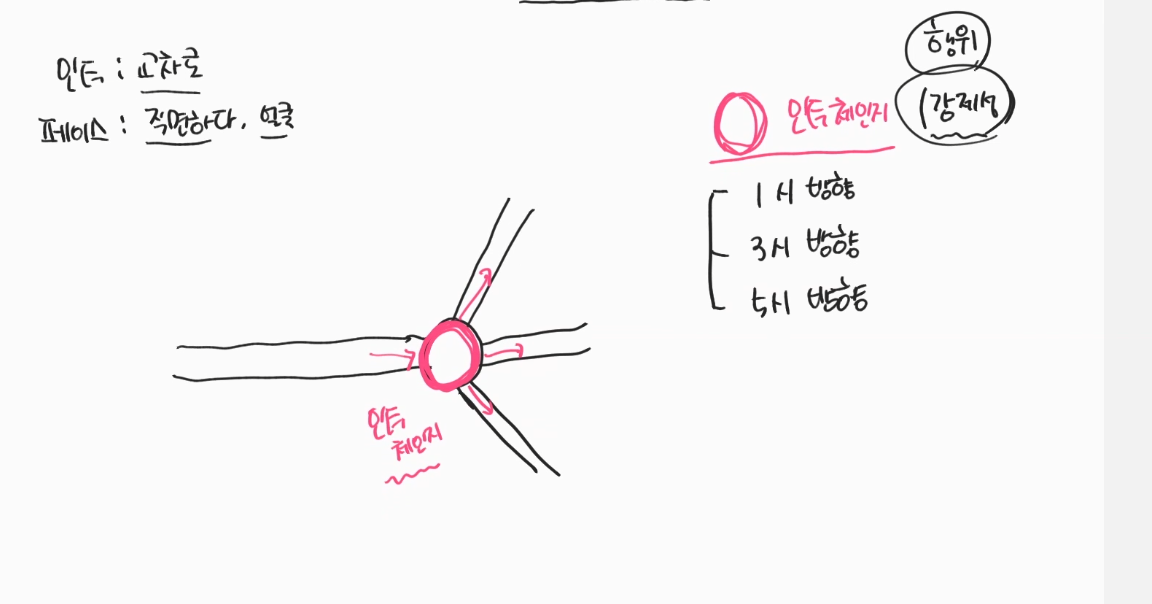 인터 : 교차로
페이스 : 직면하다, 얼굴
행위
강제성
인터체인지
1시 방향
3시 방향
5시 방향
인터
체인지